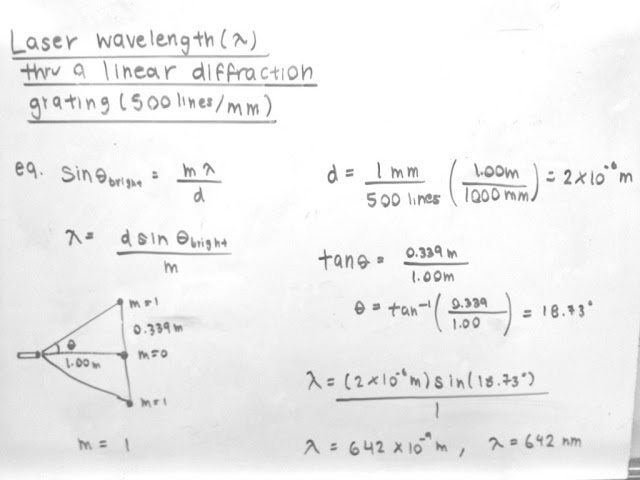 Laser wavelength (λ)
thru a linear diffraction
grating (500 lines/mm)
eq. sin θbright = mλ / d
λ = d sin θbright / m
m=1
0.339 m
θ
m=0
1.00m
m=1
m = 1
d = 1 mm / 500 lines (1.00m / 1000 mm) = 2×10⁻⁶ m
tanθ = 0.339 m / 1.00m
θ = tan⁻¹ (0.339 / 1.00) = 18.73°
λ = (2×10⁻⁶m) sin(18.73°) / 1
λ = 642 ×10⁻⁹ m , λ = 642 nm